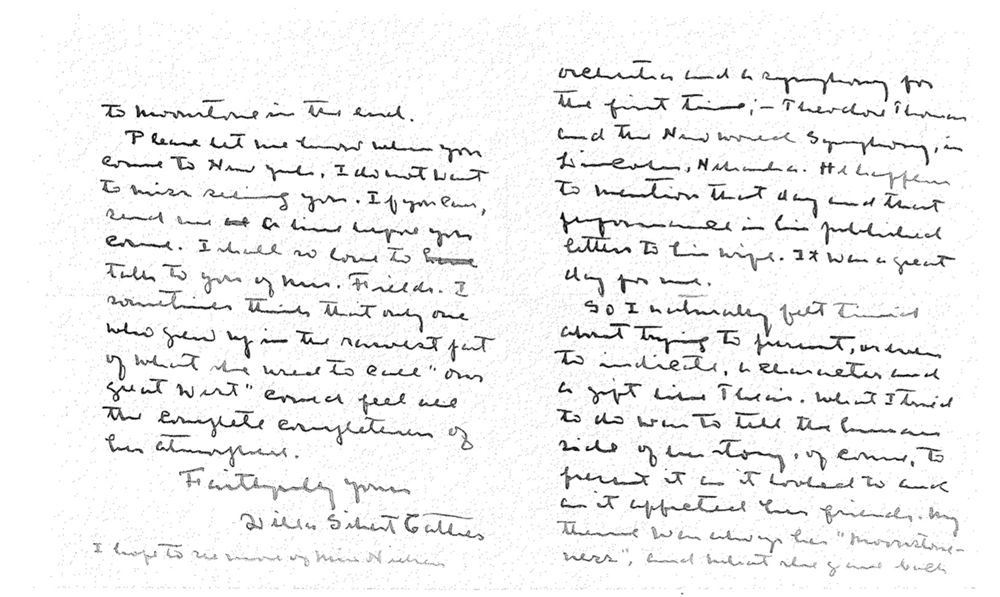 to Moonstone in the end.
Please let me know when you
come to New York, I do not want
to miss seeing you. If you can,
send me a line before you
come. I shall so love to
talk to you of Mrs. Fields. I
sometimes think that only one
who grew up in the rawest part
of what she used to call "our
great West" could feel all
the complete completeness of
her atmosphere.
Faithfully yours
Willa Sibert Cather
I hope to see more of Miss
orchestra and a symphony for
the first time;— Theodore Thomas
and the New World Symphony, in
Lincoln, Nebraska. He happens
to mention that day and that
performance in his published
letters to his wife. It was a great
day for me.
So I naturally felt timid
about trying to present, or even
to indicate, a character and
a gift like Thea's. What I tried
to do was to tell the human
side of her story, of course, to
present it as it looked to and
as it affected her friends. My
theme was always her "Moonstone-
ness", and what she gave back